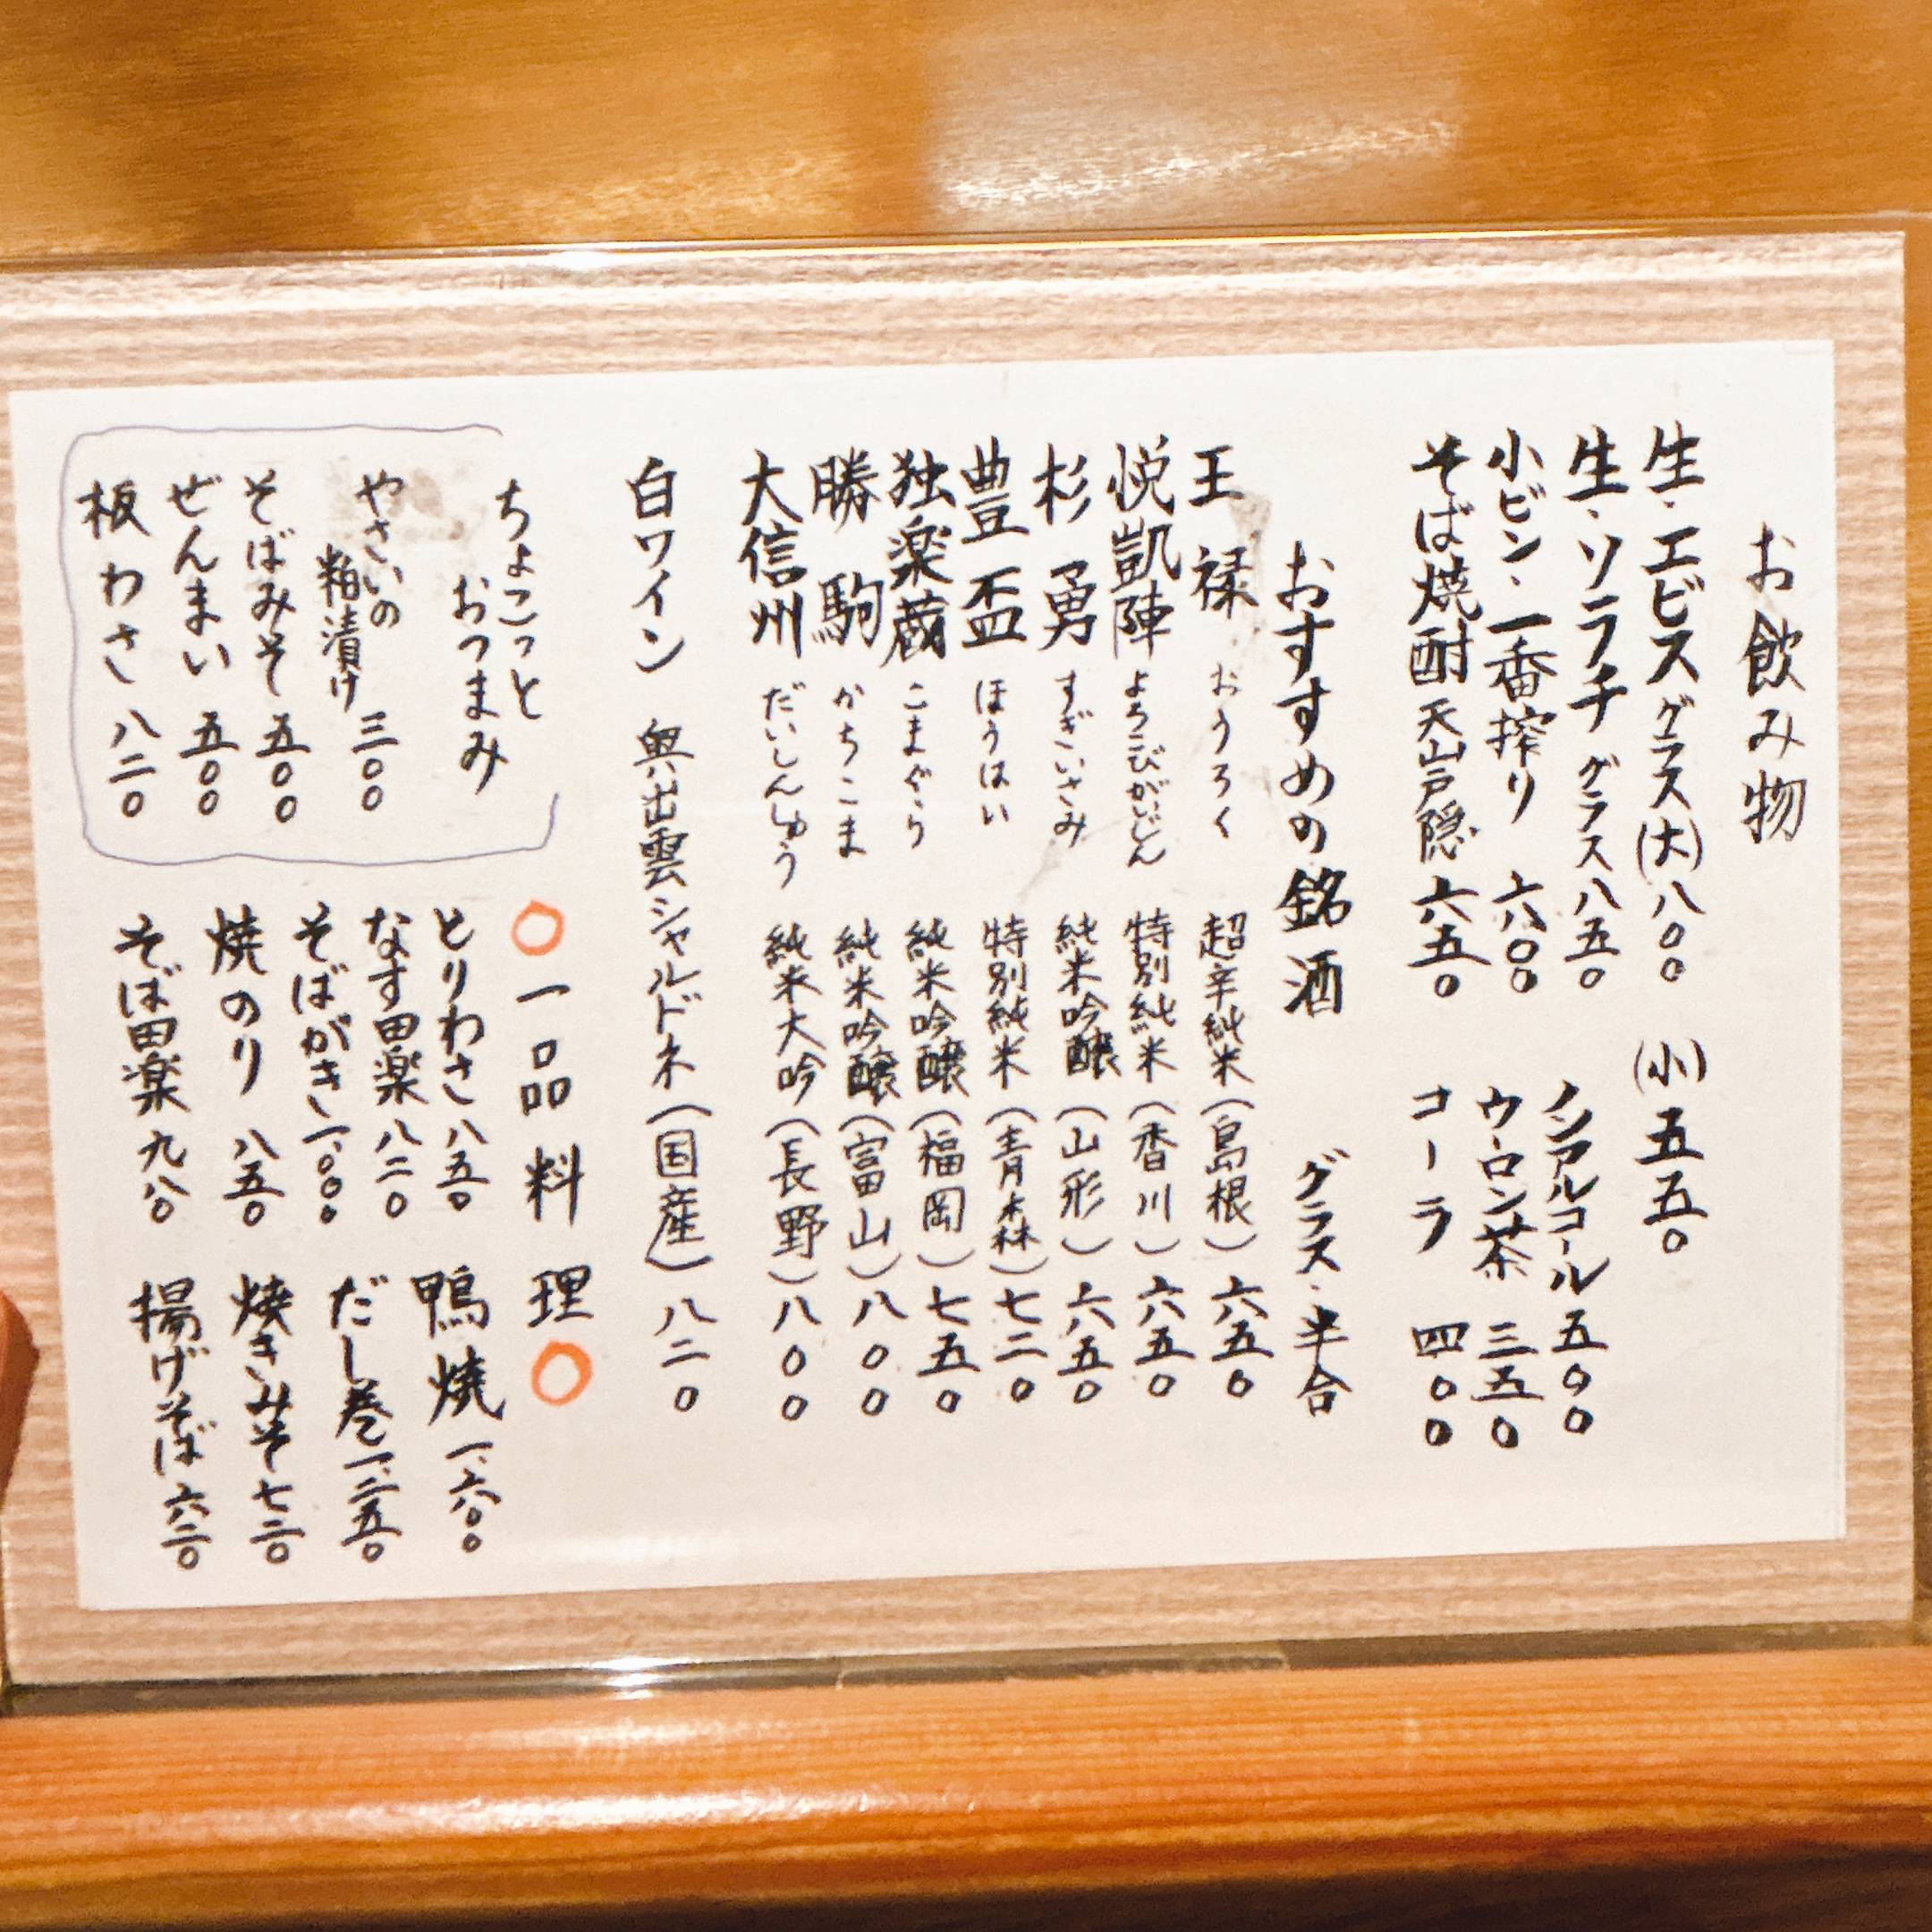 お飲み物
生・エビス グラス(大)八〇〇 (小)五五〇
生・ソラチ グラス 八五〇 ノンアルコール 五〇〇
小ビン・一番搾り 六〇〇 ウーロン茶 三五〇
そば焼酎 天山戸隠 六五〇 コーラ 四〇〇
おすすめの銘酒 グラス・半合
王禄 おうろく 超辛純米(島根)六五〇
悦凱陣 よろこびがいじん 特別純米(香川)六五〇
杉勇 すぎいさみ 純米吟醸(山形)六五〇
豊盃 ほうはい 特別純米(青森)七二〇
独楽蔵 こまぐら 純米吟醸(福岡)七五〇
勝駒 かちこま 純米吟醸(富山)八〇〇
大信州 だいしんしゅう 純米大吟(長野)八〇〇
白ワイン 奥出雲シャルドネ(国産)八二〇
ちょこっと
おつまみ
やさいの
粕漬け 三〇〇
そばみそ 五〇〇
ぜんまい 五〇〇
板わさ 八二〇
〇一品料理〇
とりわさ 八五〇 鴨焼 一、六〇〇
なす田楽 八二〇 だし巻 一、二五〇
そばがき 一、〇〇〇 焼きみそ 七二〇
焼のり 八五〇 揚げそば 六二〇
そば田楽 九八〇